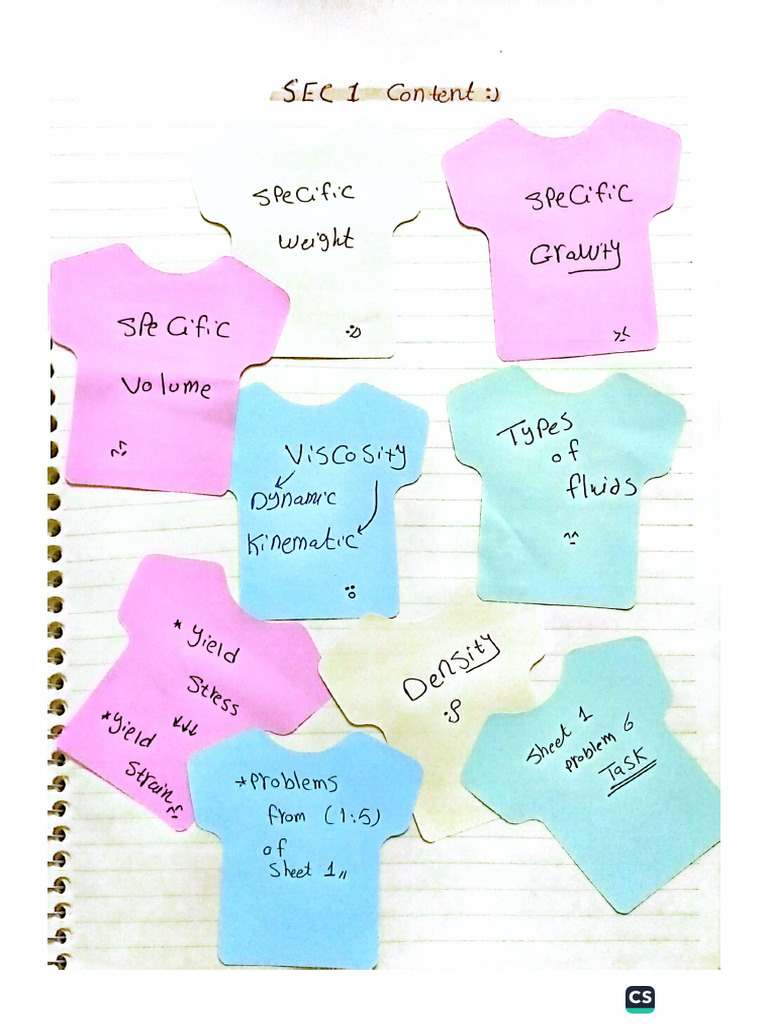 SEC 1 Content :)
Specific
Weight
:D
Specific
Gravity
>.<
Specific
Volume
Viscosity
Dynamic
Kinematic
Types
of
fluids
^_^
* Yield
Stress
↓↓↓
* Yield
Strain
Density
:P
Sheet 1
problem 6
Task
* Problems
from (1:5)
of
Sheet 1,,
CS